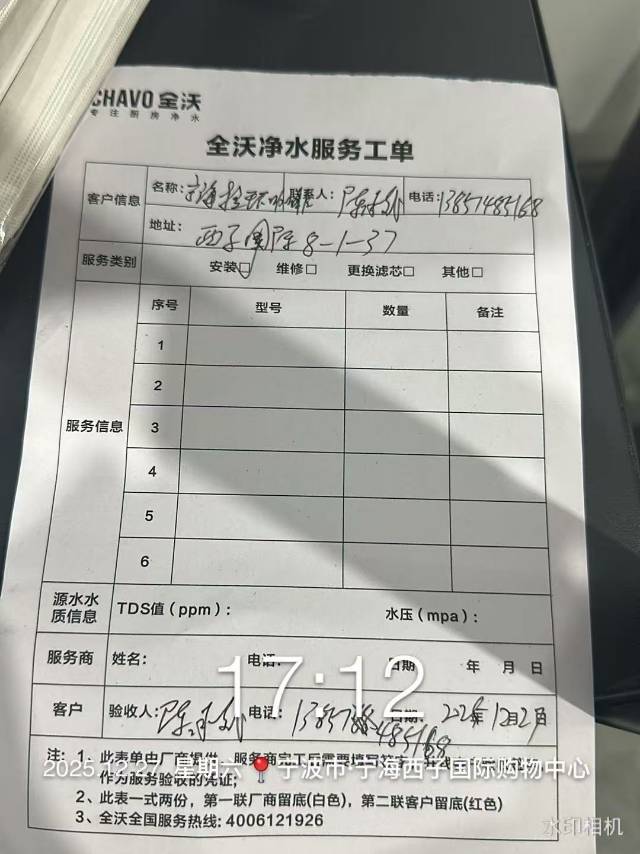 CHAVO 全沃
专注厨房净水
全沃净水服务工单
客户信息 名称: 联系人: 电话: 13857485168
地址: 西子国际 8-1-37
服务类别 安装□ 维修□ 更换滤芯□ 其他□
服务信息 序号 型号 数量 备注
1
2
3
4
5
6
源水水质信息 TDS值(ppm): 水压(mpa):
服务商 姓名: 电话: 日期 年 月 日
17:12
客户 验收人: 电话: 日期:
注: 1、此表单由厂商提供, 服务商完工后需
作为服务验收的凭证;
2025.12.27 星期六 宁波市·宁海西子国际购物中心
2、此表一式两份, 第一联厂商留底(白色), 第二联客户留底(红色)
3、全沃全国服务热线: 4006121926
水印相机